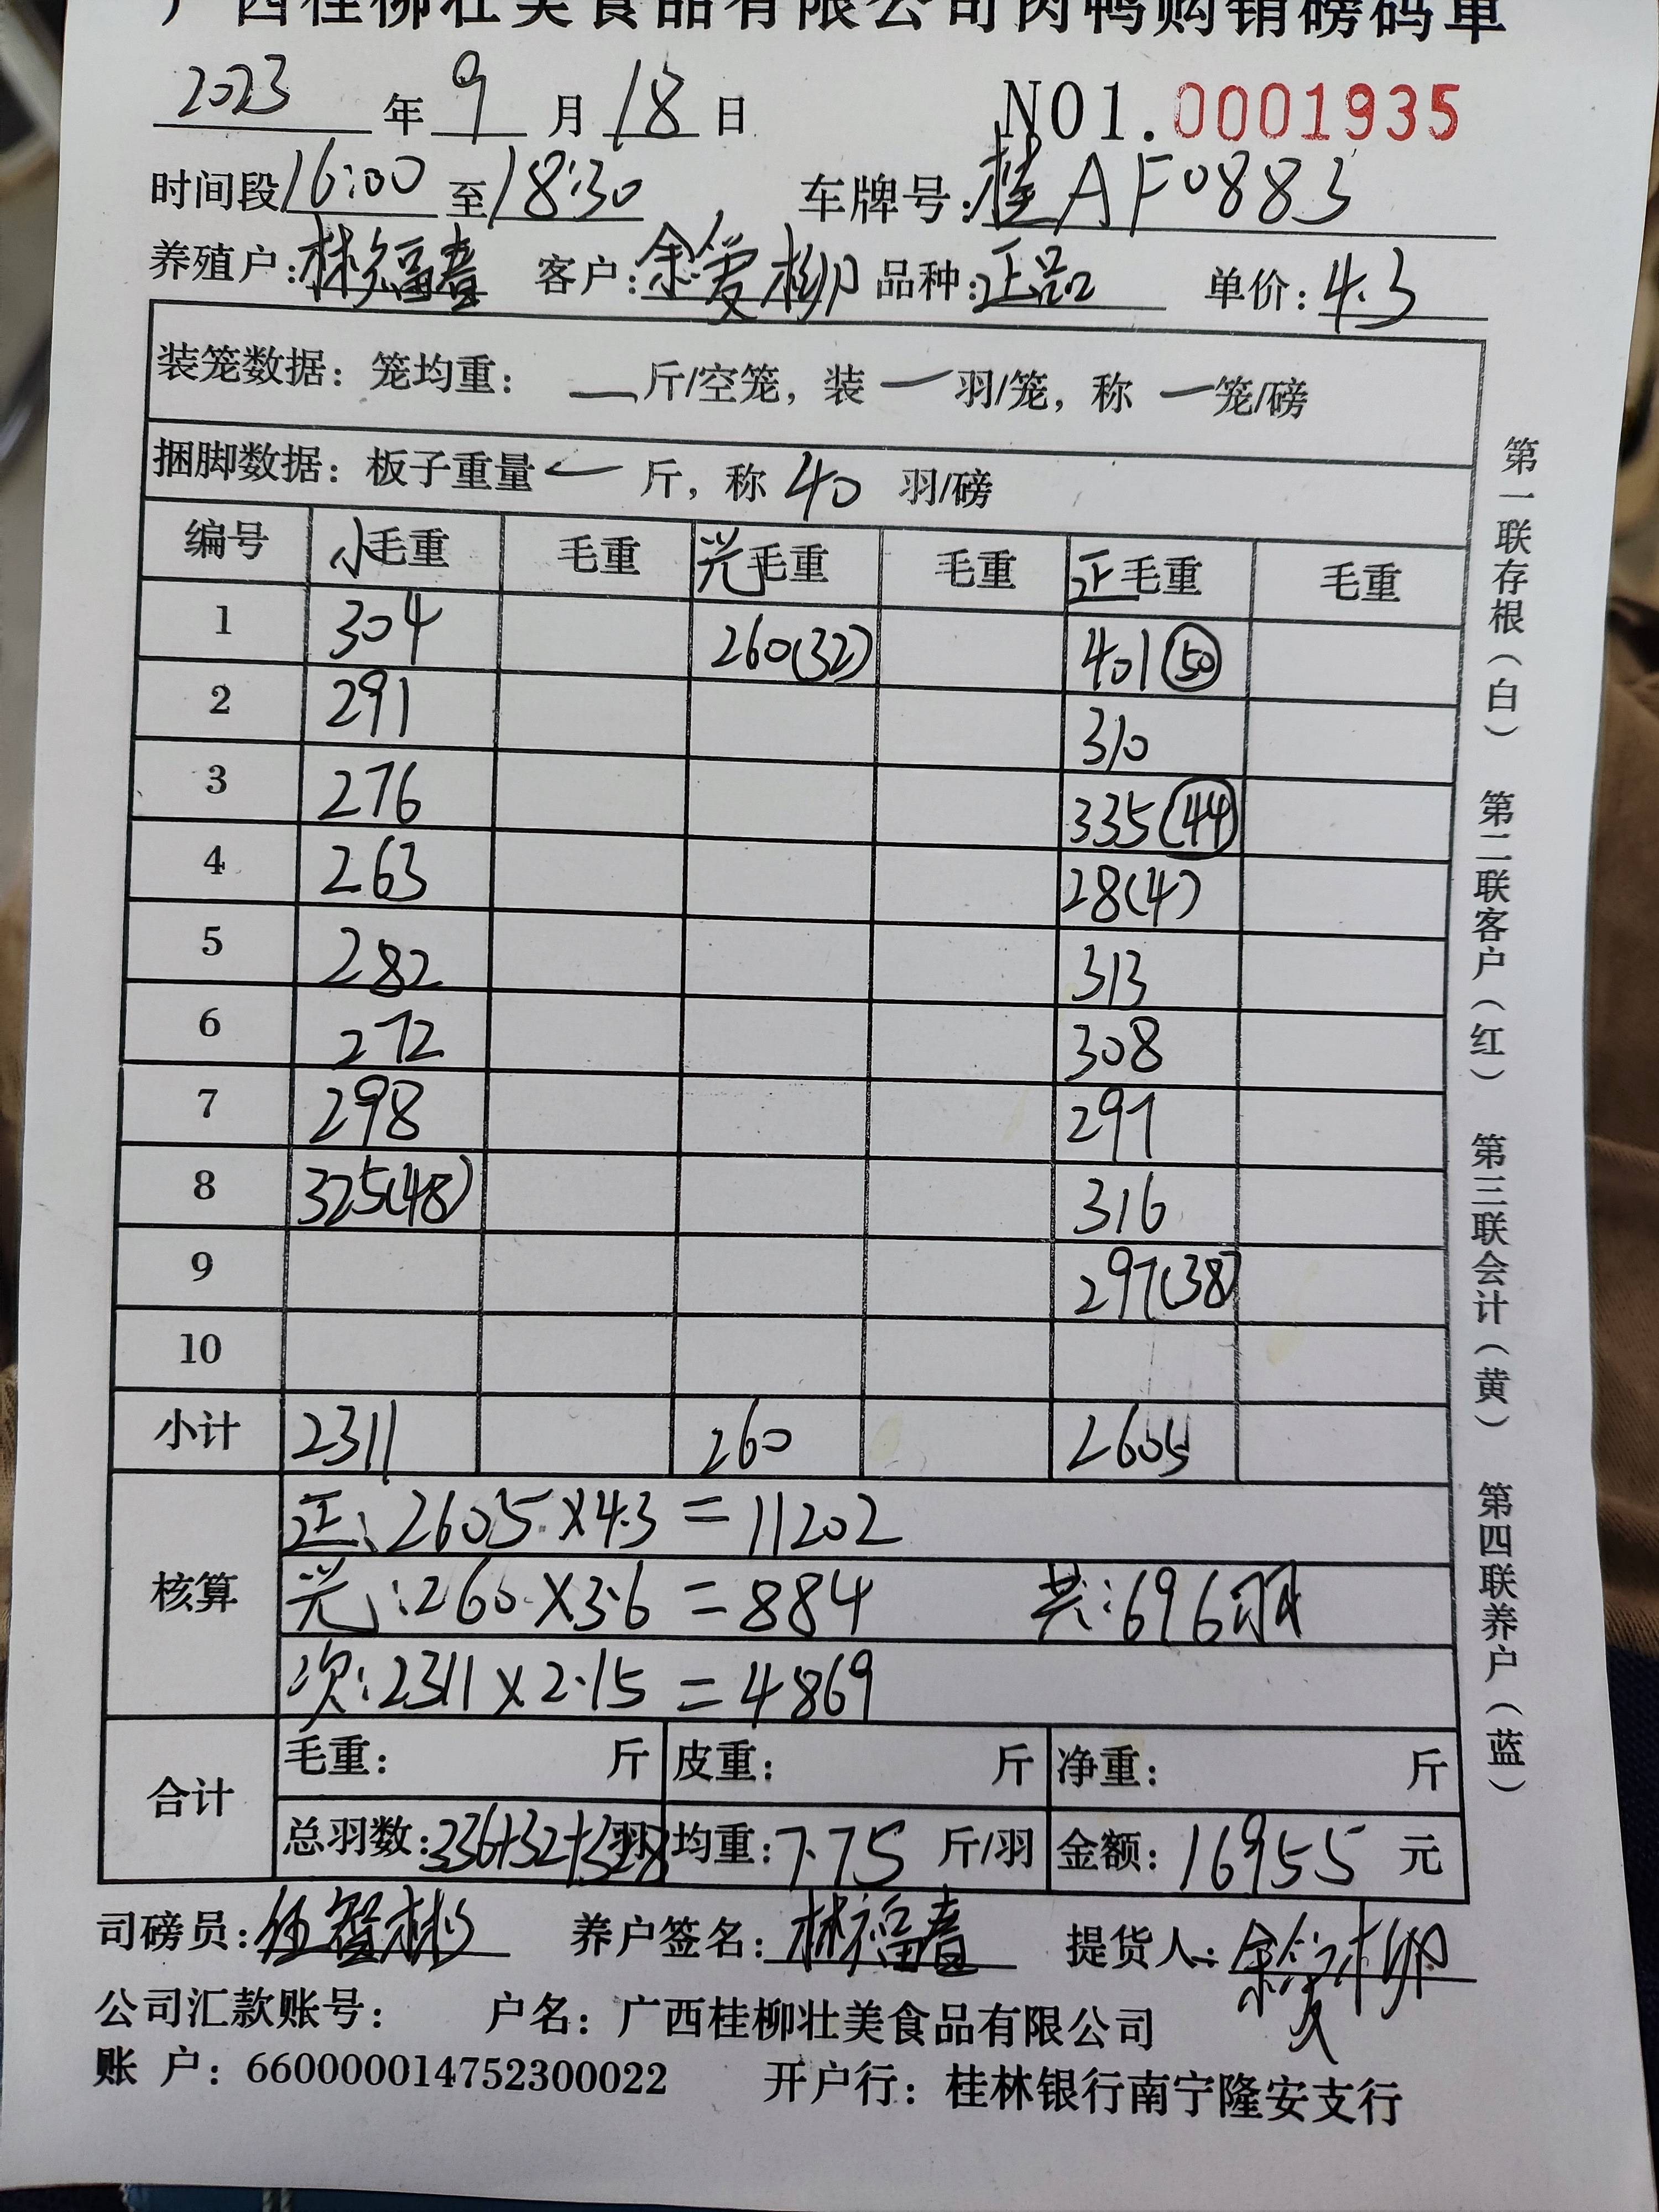 广西桂柳壮美食品有限公司肉鸭购销磅码单
2023 年 9 月 18 日 NO1.0001935
时间段 16:00 至 18:30 车牌号:桂AF0883
养殖户:林福春 客户:余爱柳 品种:正品 单价:4.3
装笼数据：笼均重： — 斤/空笼，装 — 羽/笼，称 — 笼/磅
捆脚数据：板子重量 — 斤，称 40 羽/磅
编号 小毛重 毛重 光毛重 毛重 正毛重 毛重
1 304 260(32) 401(50)
2 291 310
3 276 335(44)
4 263 28(4)
5 282 313
6 272 308
7 298 297
8 325(48) 316
9 297(38)
10
小计 2311 260 2605
核算
正:2605×4.3=11202
光:260×3.6=884 共:696羽
次:2311×2.15=4869
合计
毛重： 斤 皮重： 斤 净重： 斤
总羽数:336+32+328羽 均重:7.75 斤/羽 金额:16955 元
司磅员:伍智彬 养户签名:林福春 提货人:余爱柳
公司汇款账号： 户名：广西桂柳壮美食品有限公司
账 户：660000014752300022 开户行：桂林银行南宁隆安支行
第一联存根（白） 第二联客户（红） 第三联会计（黄） 第四联养户（蓝）